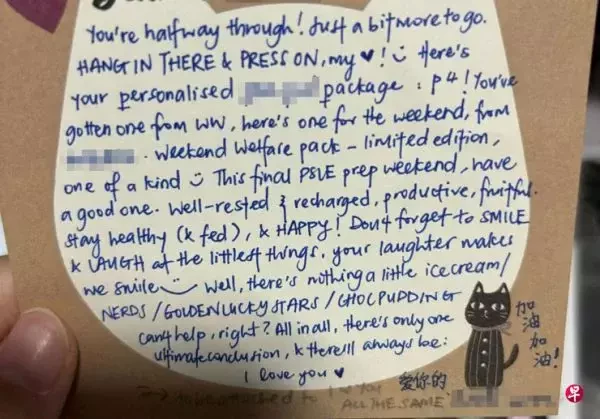 You're halfway through! Just a bit more to go.
HANG IN THERE & PRESS ON, my ♥! Here's
your personalised package : P4! You've
gotten one from WW, here's one for the weekend, from
. Weekend Welfare pack - limited edition,
one of a kind This final PSLE prep weekend, have
a good one. Well-rested & recharged, productive, fruitful.
Stay healthy (& fed), & HAPPY! Don't forget to SMILE
& LAUGH at the littlest things, your laughter makes
we smile Well, there's nothing a little ice cream/
NERDS/GOLDEN LUCKY STARS/CHOC PUDDING
can't help, right? All in all, there's only one
ultimate conclusion, & there'll always be:
I love you ♥
爱你的
ALL THE SAME
加油加油!
早